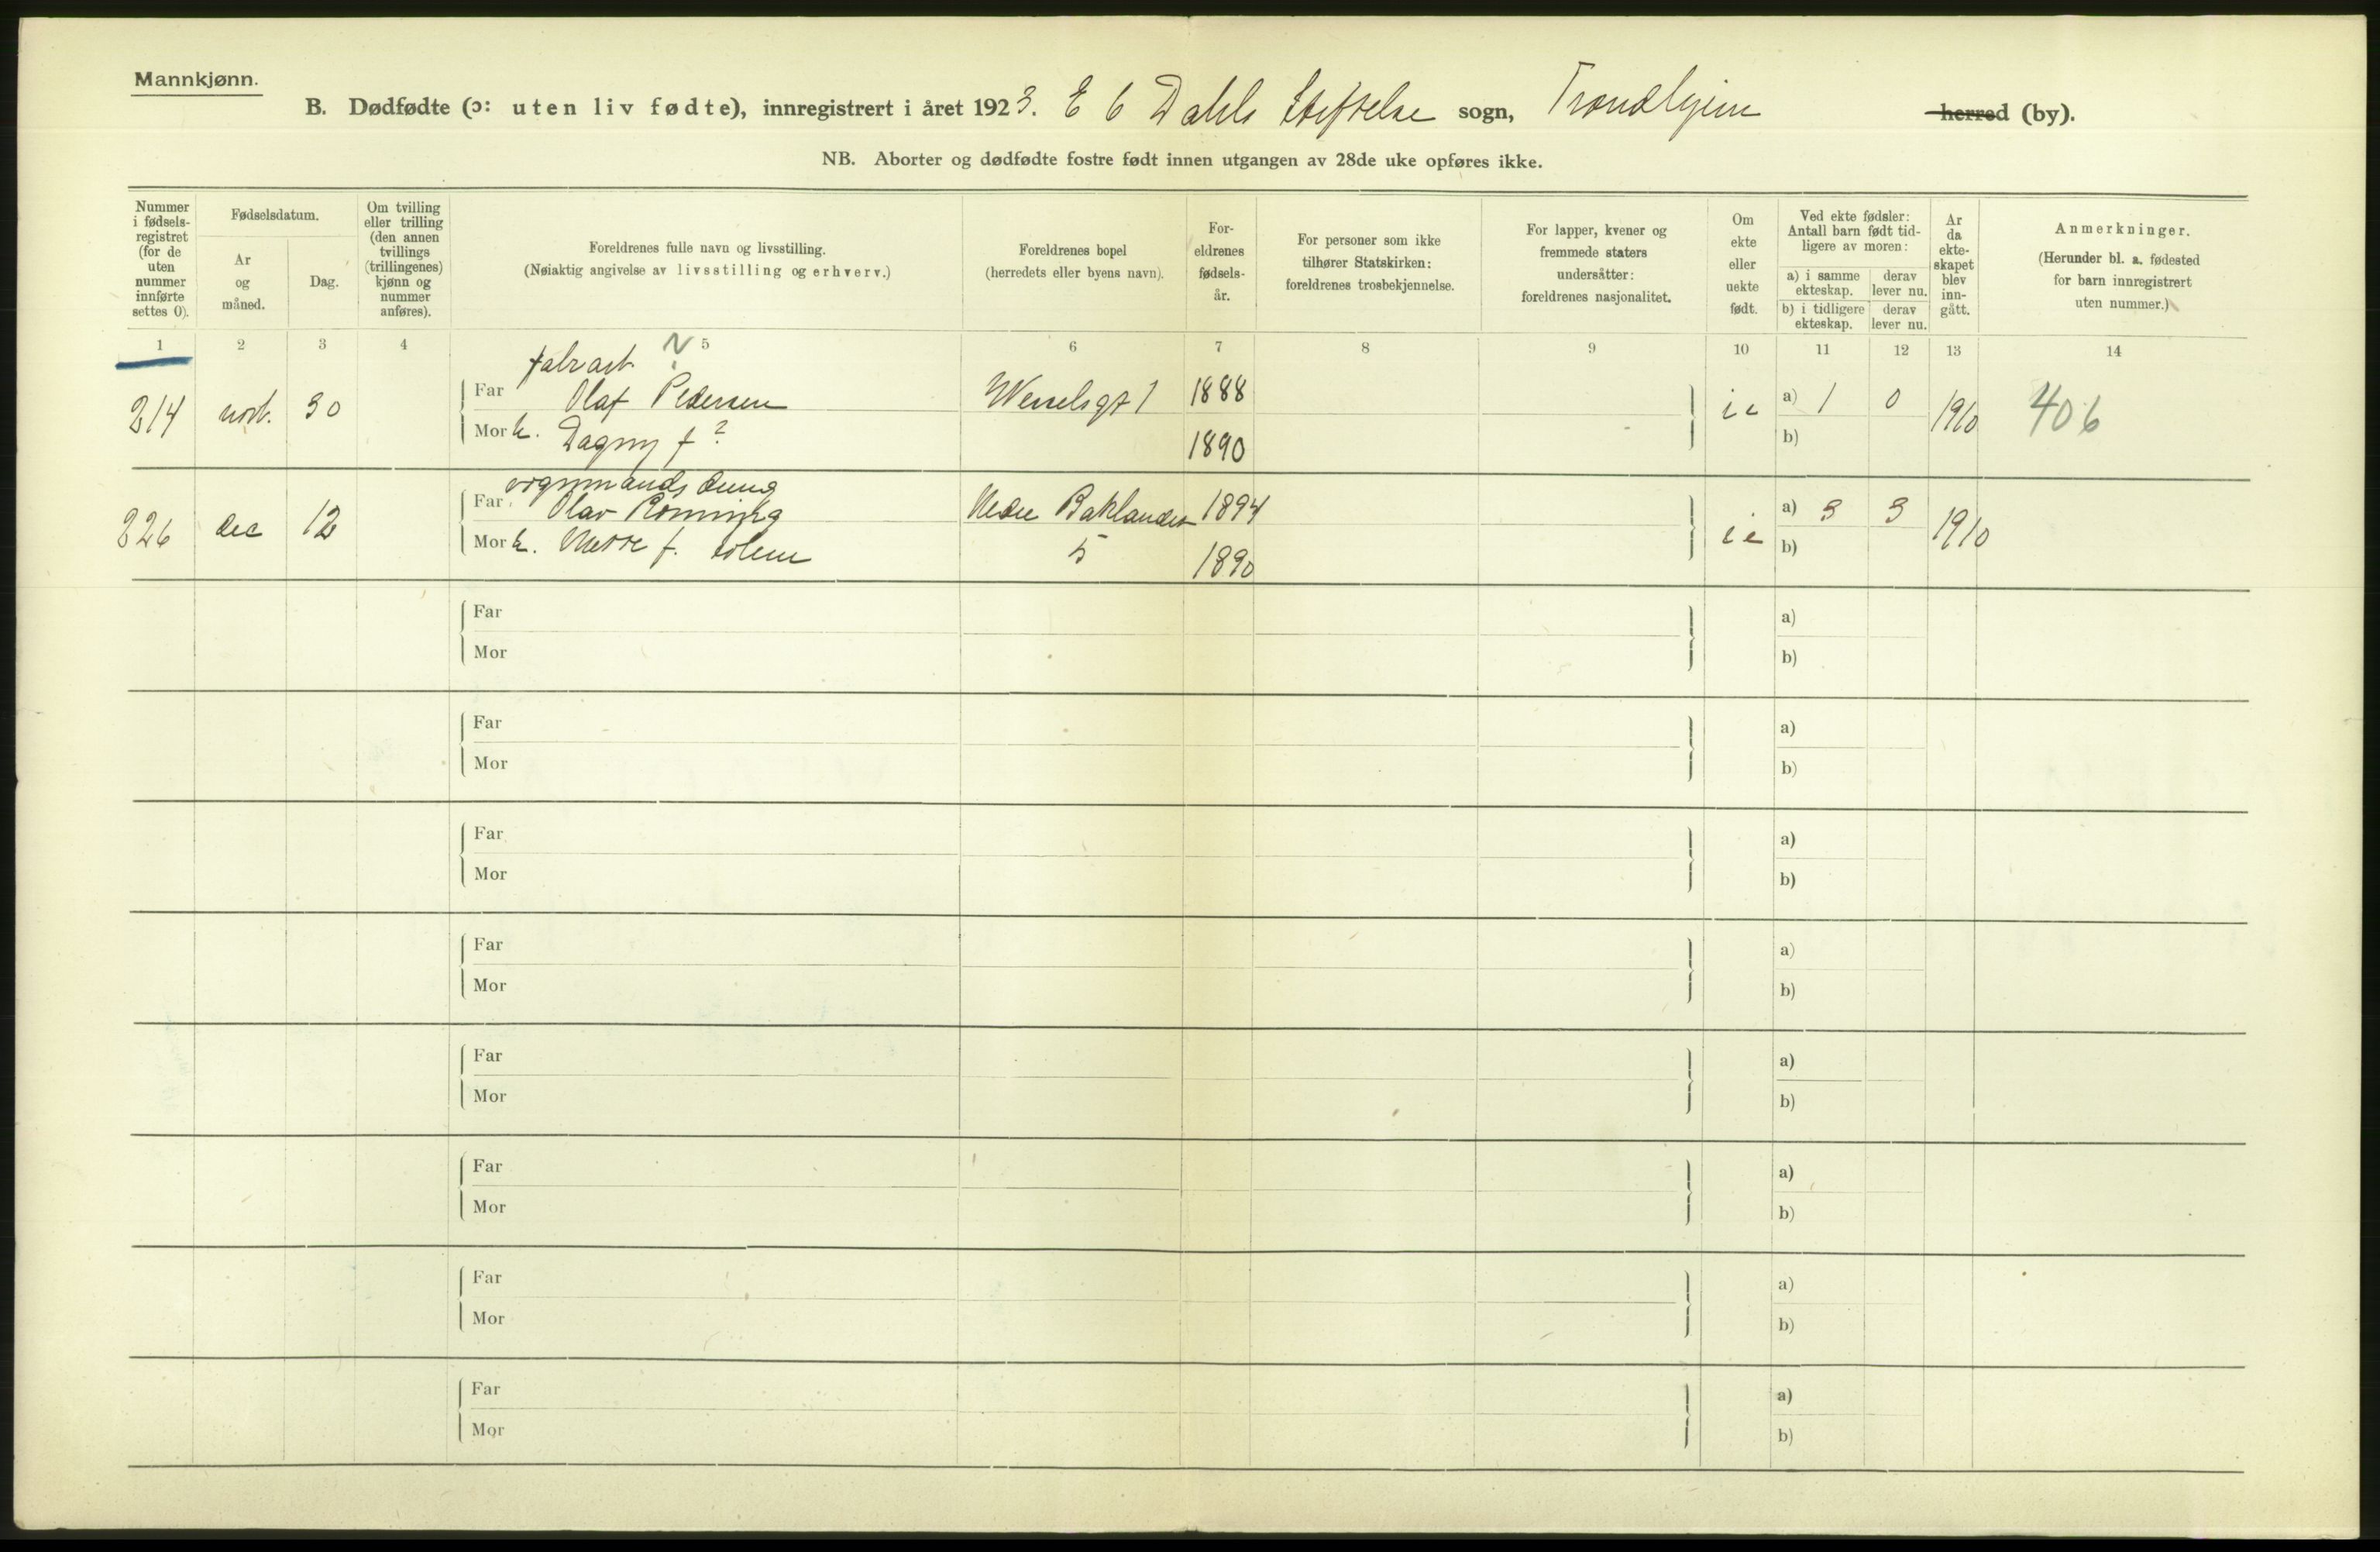 Mannkjønn.
B. Dødfødte (ɔ: uten liv fødte), innregistrert i året 1923. E C Dahls Stiftelse sogn, Trondhjem herred (by).
NB. Aborter og dødfødte fostre født innen utgangen av 28de uke opføres ikke.
Nummer i fødsels-registret (for de uten nummer innførte settes 0).
Fødselsdatum.
År og måned.
Dag.
Om tvilling eller trilling (den annen tvillings (trillingenes) kjønn og nummer anføres).
Foreldrenes fulle navn og livsstilling.
(Nøiaktig angivelse av livsstilling og erhverv.)
Foreldrenes bopel
(herredets eller byens navn).
For-eldrenes fødsels-år.
For personer som ikke tilhører Statskirken: foreldrenes trosbekjennelse.
For lapper, kvener og fremmede staters undersåtter: foreldrenes nasjonalitet.
Om ekte eller uekte født.
Ved ekte fødsler: Antall barn født tid-ligere av moren:
a) i samme ekteskap.
derav lever nu.
b) i tidligere ekteskap.
derav lever nu.
År da ekte-skapet blev inn-gått.
Anmerkninger.
(Herunder bl. a. fødested for barn innregistrert uten nummer.)
1 2 3 4 5 6 7 8 9 10 11 12 13 14
fabr arb. ?
214 novb. 30 Far Olaf Pedersen Wesselsgt 1 1888 ie a) 1 0 1910 406
Mor h. Dagny f ? 1890 b)
226 dec 12 Far Olav Rönning Nedre Baklandet 1894 ie a) 3 3 1910
Mor h. Mette f. Solem 5 1890 b)
Far a)
Mor b)
Far a)
Mor b)
Far a)
Mor b)
Far a)
Mor b)
Far a)
Mor b)
Far a)
Mor b)
Far a)
Mor b)
Far a)
Mor b)